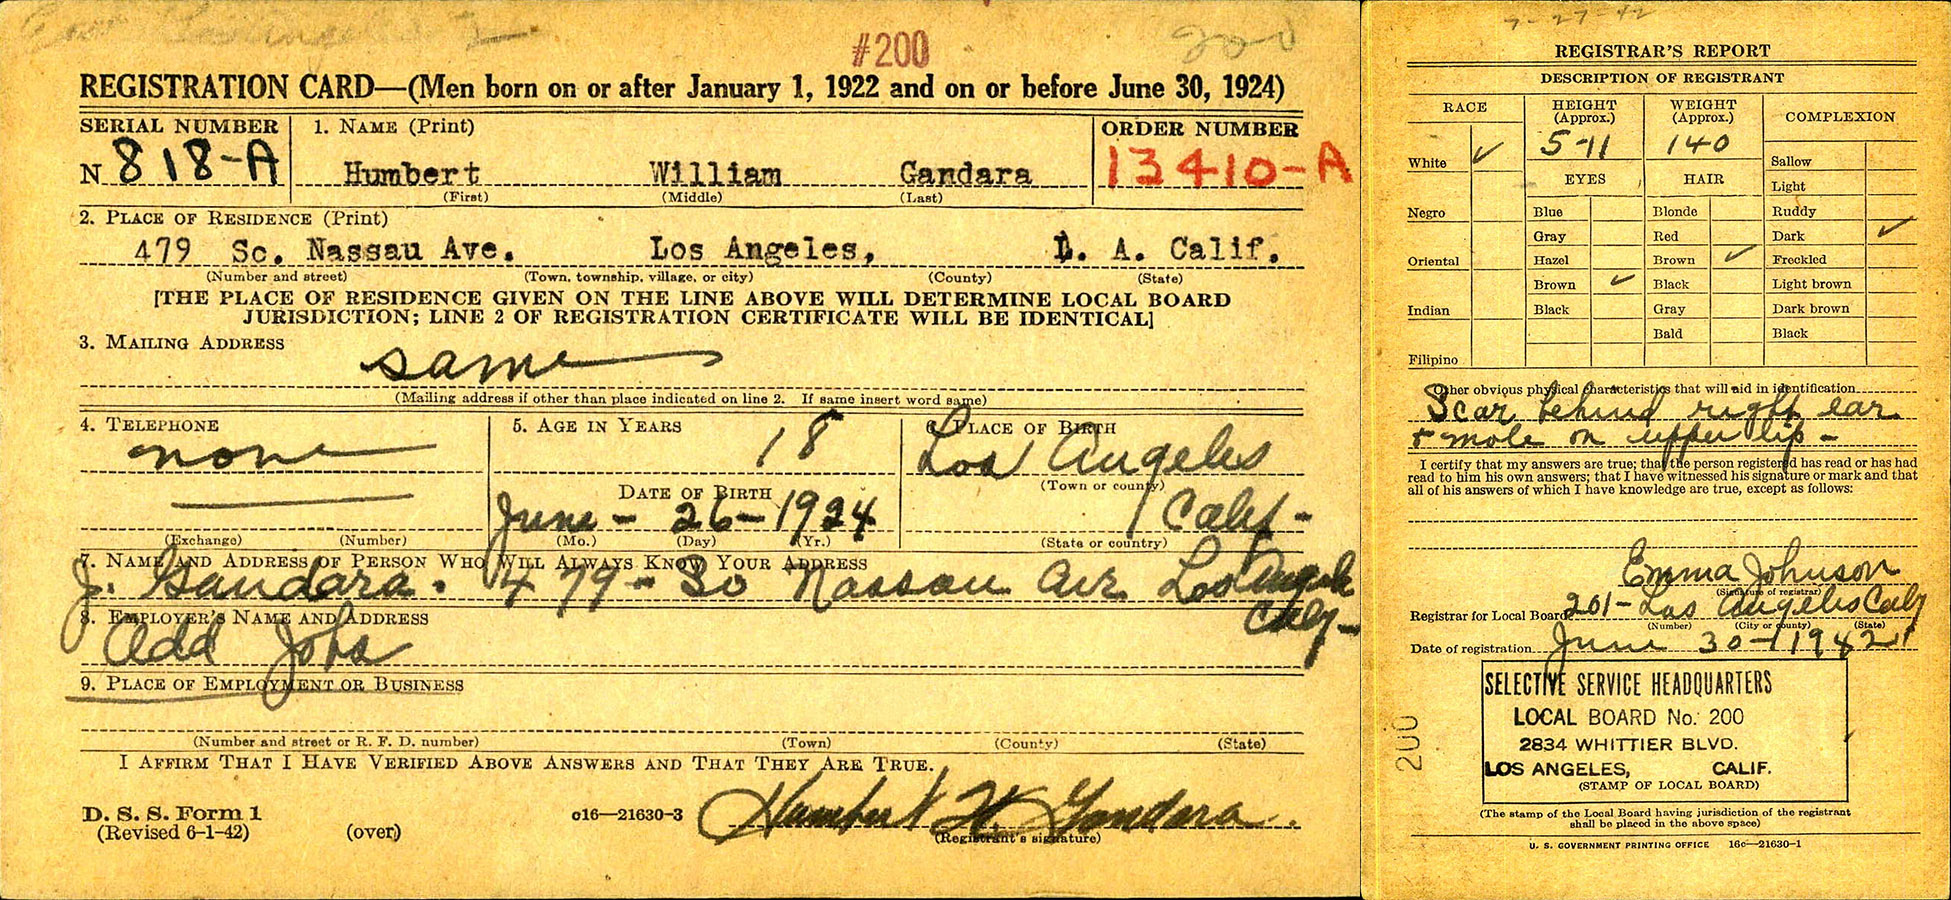 #200
200
REGISTRATION CARD—(Men born on or after January 1, 1922 and on or before June 30, 1924)
SERIAL NUMBER
1. NAME (Print)
ORDER NUMBER
N 818-A
Humbert William Gandara
13410-A
(First) (Middle) (Last)
2. PLACE OF RESIDENCE (Print)
479 So. Nassau Ave. Los Angeles, L. A. Calif.
(Number and street) (Town, township, village, or city) (County) (State)
[THE PLACE OF RESIDENCE GIVEN ON THE LINE ABOVE WILL DETERMINE LOCAL BOARD
JURISDICTION; LINE 2 OF REGISTRATION CERTIFICATE WILL BE IDENTICAL]
3. MAILING ADDRESS
same
(Mailing address if other than place indicated on line 2. If same insert word same)
4. TELEPHONE
none
(Exchange) (Number)
5. AGE IN YEARS
18
DATE OF BIRTH
June - 26 - 1924
(Mo.) (Day) (Yr.)
6. PLACE OF BIRTH
Los Angeles
(Town or county)
Calif -
(State or country)
7. NAME AND ADDRESS OF PERSON WHO WILL ALWAYS KNOW YOUR ADDRESS
J. Gandara. 479 - So Nassau Ave Los Angeles
Calif -
8. EMPLOYER'S NAME AND ADDRESS
Odd Jobs
9. PLACE OF EMPLOYMENT OR BUSINESS
(Number and street or R. F. D. number) (Town) (County) (State)
I AFFIRM THAT I HAVE VERIFIED ABOVE ANSWERS AND THAT THEY ARE TRUE.
D. S. S. Form 1
(Revised 6-1-42) (over)
c16—21630-3
Humbert W. Gandara.
(Registrant's signature)
7-27-42
REGISTRAR'S REPORT
DESCRIPTION OF REGISTRANT
RACE
HEIGHT (Approx.)
WEIGHT (Approx.)
COMPLEXION
White ✓
5-11
140
Sallow
EYES
HAIR
Light
Negro
Blue
Blonde
Ruddy
Gray
Red
Dark ✓
Oriental
Hazel
Brown ✓
Freckled
Brown ✓
Black
Light brown
Indian
Black
Gray
Dark brown
Bald
Black
Filipino
Other obvious physical characteristics that will aid in identification
Scar behind right ear
+ mole on upper lip -
I certify that my answers are true; that the person registered has read or has had
read to him his own answers; that I have witnessed his signature or mark and that
all of his answers of which I have knowledge are true, except as follows:
Emma Johnson
(Signature of registrar)
Registrar for Local Board 201 - Los Angeles Calif
(Number) (City or county) (State)
Date of registration June 30 - 1942
SELECTIVE SERVICE HEADQUARTERS
LOCAL BOARD No. 200
2834 WHITTIER BLVD.
LOS ANGELES, CALIF.
(STAMP OF LOCAL BOARD)
200
(The stamp of the Local Board having jurisdiction of the registrant
shall be placed in the above space)
U. S. GOVERNMENT PRINTING OFFICE 16c—21630-1